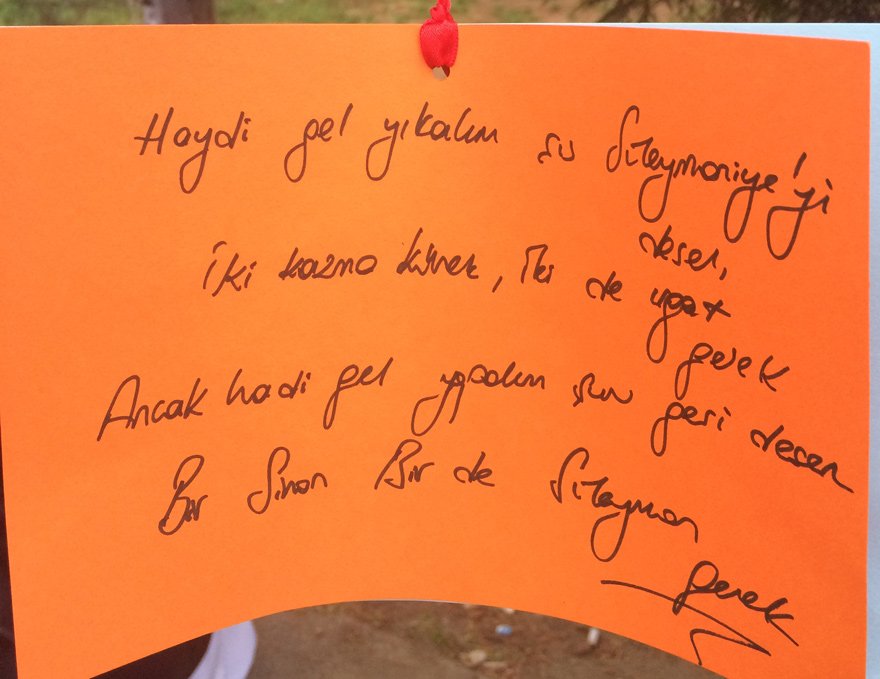 Haydi gel yıkalım şu Süleymaniye'yi
desen,
İki kazma kürek, iki de ırgat
gerek
Ancak hadi gel yapalım şunu geri desen
Bir Sinan Bir de Süleyman
gerek